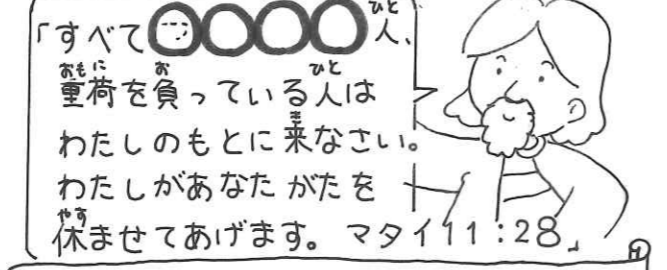 「すべて◯◯◯◯人、
重荷を負っている人は
わたしのもとに来なさい。
わたしがあなたがたを
休ませてあげます。マタイ11:28」